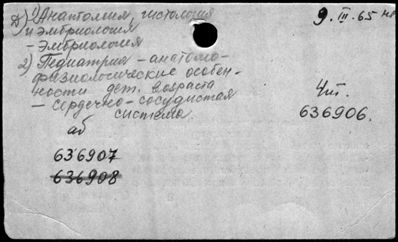 1) Анатомия, гистология
и эмбриология
- Эмбриология
2) Педиатрия - анатомо-
физиологические особен-
ности дет. возраста
- сердечно-сосудистая
система.
аб
636907
636908
9.III.65
4т.
636906.